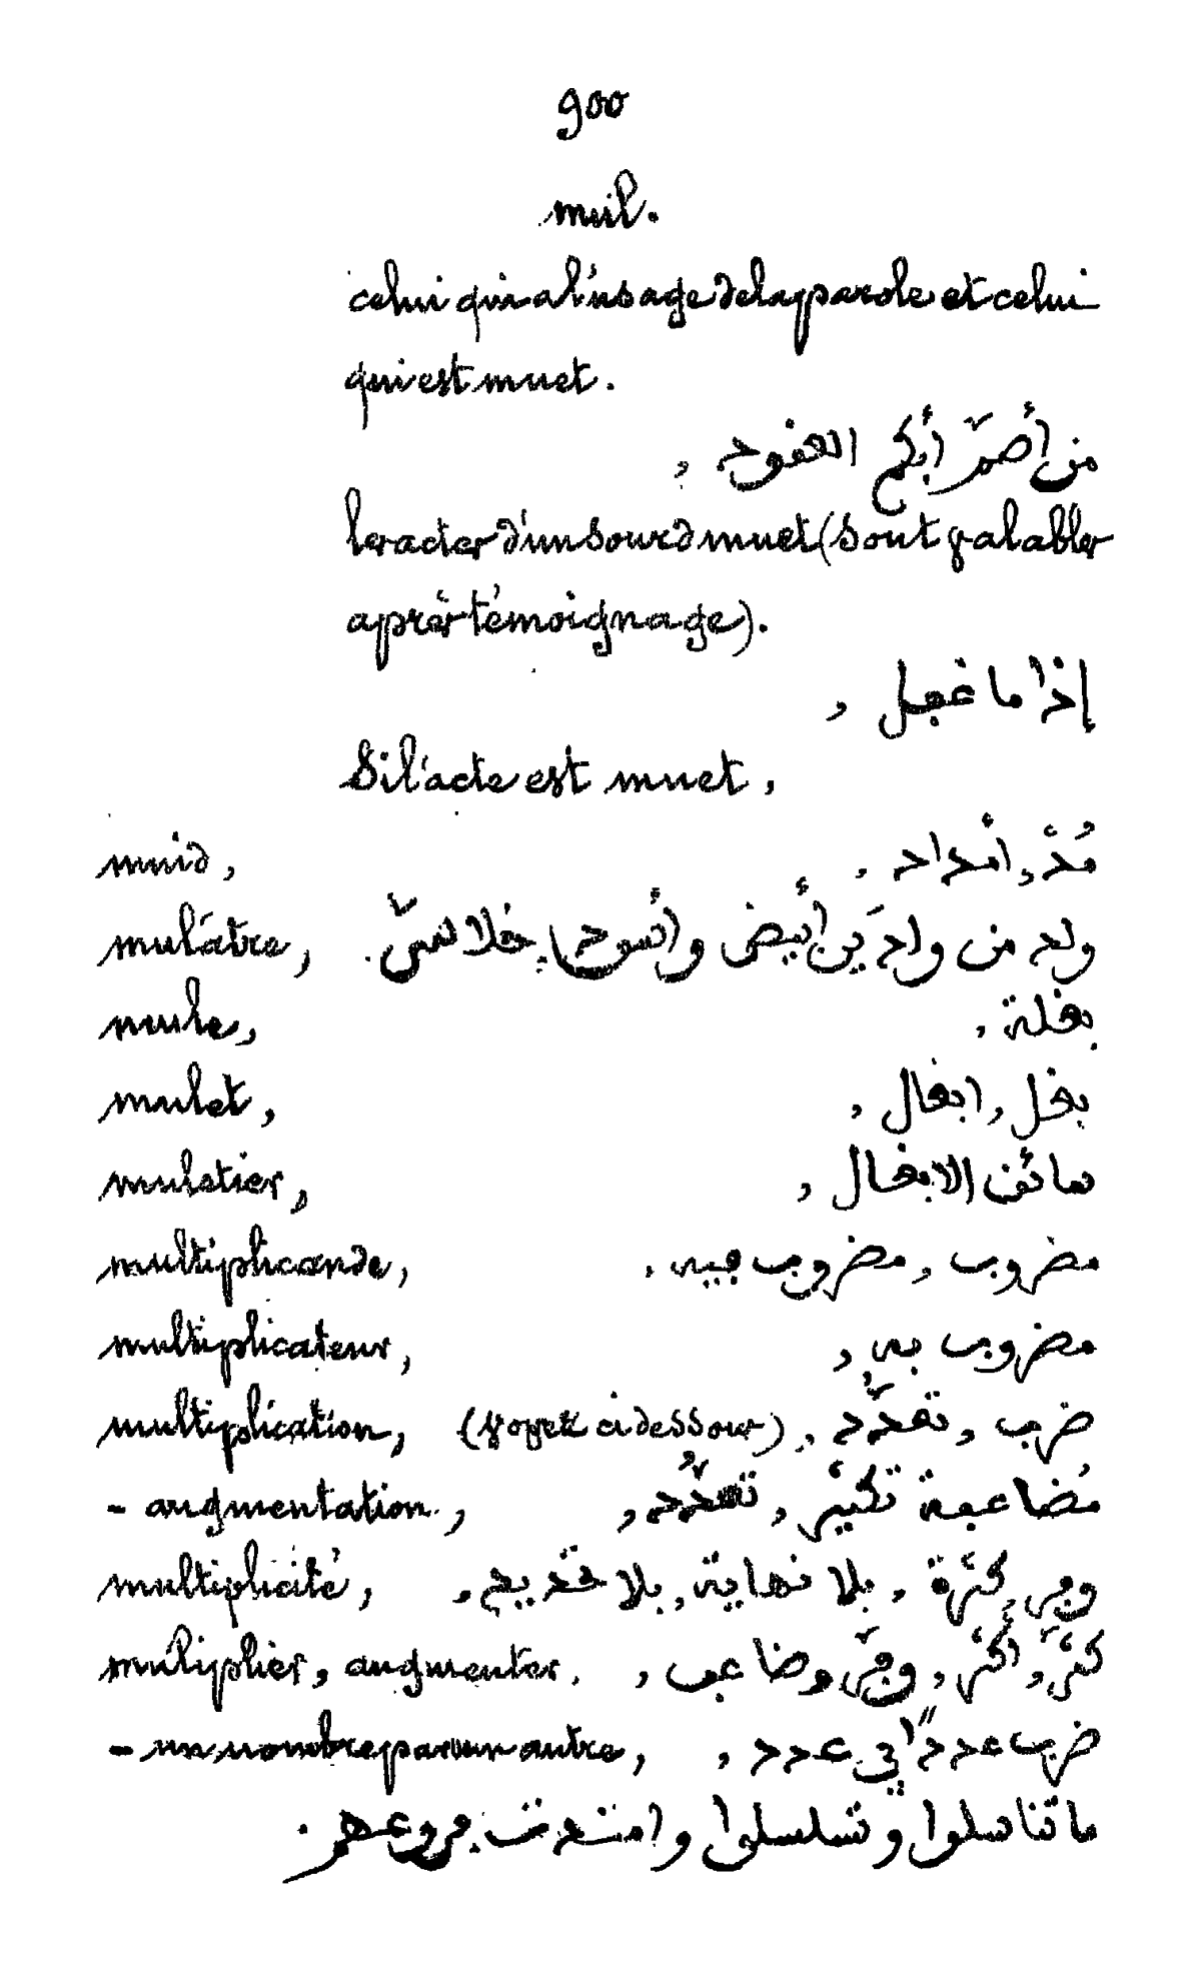 900
mul.
celui qui a l'usage de la parole et celui
qui est muet.
من أصمّ أبكم العقود,
les actes d'un sourd muet (sont valables
après témoignage).
إذا ما عقل,
Si l'acte est muet,
muid, مُدّ, أمداد.
mulâtre, ولد من والدَين أبيض وأسود, خلاسيّ.
mule, بغلة,
mulet, بغل, ابغال,
muletier, سائق الابغال,
multiplicande, مضروب, مضروب فيه,
multiplicateur, مضروب به,
multiplication, (voyez ci dessous) ضرب, تعدّد,
- augmentation, مُضاعفة تكثير, تعدّد,
multiplicité, وفر, كثرة, بلا نهاية, بلا
multiplier, augmenter, كثّر, أكثر, وفّر وضاعف,
- un nombre par un autre, ضرب عددًا في عدد,
ما تناسلوا وتسلسلوا وامتدت فروعهم.